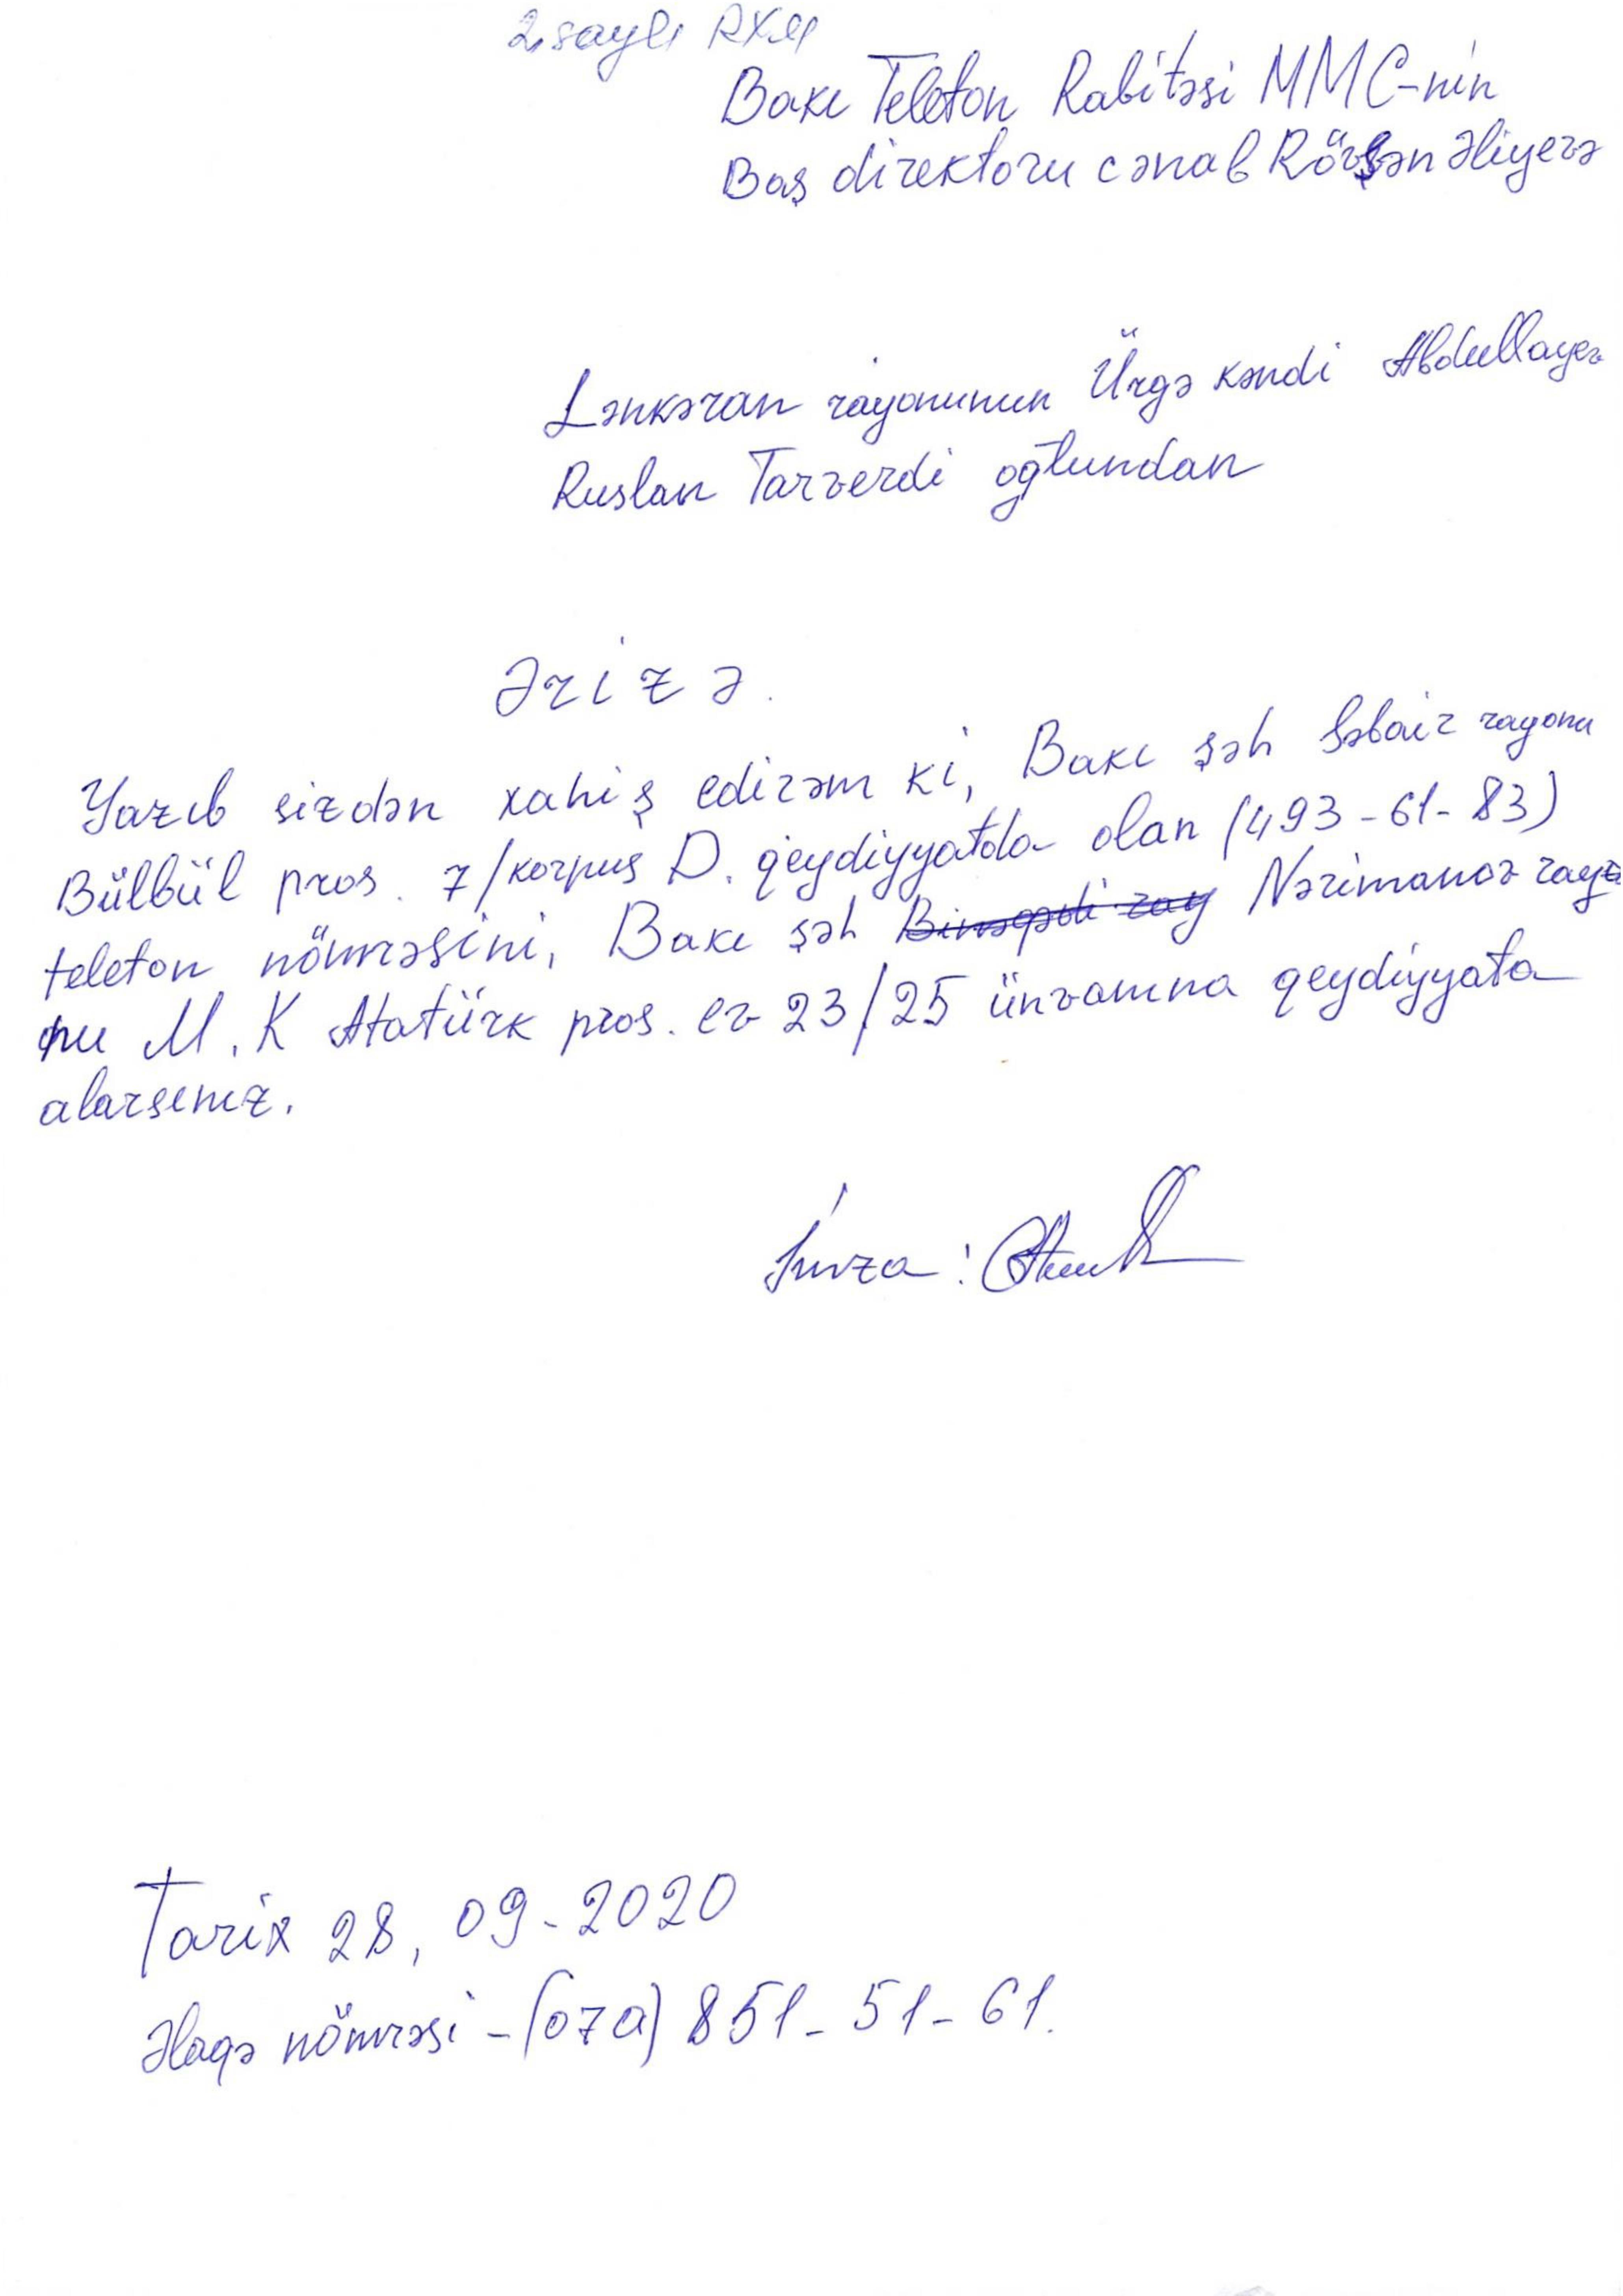 2 saylı RXM
Bakı Telefon Rabitəsi MMC-nin
Baş direktoru cənab Rövşən Əliyevə
Lənkəran rayonunun Ürgə kəndi Abdullayev
Ruslan Tarverdi oğlundan
Ərizə.
Yazıb sizdən xahiş edirəm ki, Bakı şəh Səbail rayonu
Bülbül pros. 7/korpus D. qeydiyyatda olan (493-61-83)
telefon nömrəsini, Bakı şəh Binəqədi ray Nərimanov rayo
nu M.K Atatürk pros. ev 23/25 ünvanına qeydiyyata
alarsınız.
İmza:
Tarix 28, 09-2020
Əlaqə nömrəsi - (070) 851-51-61.